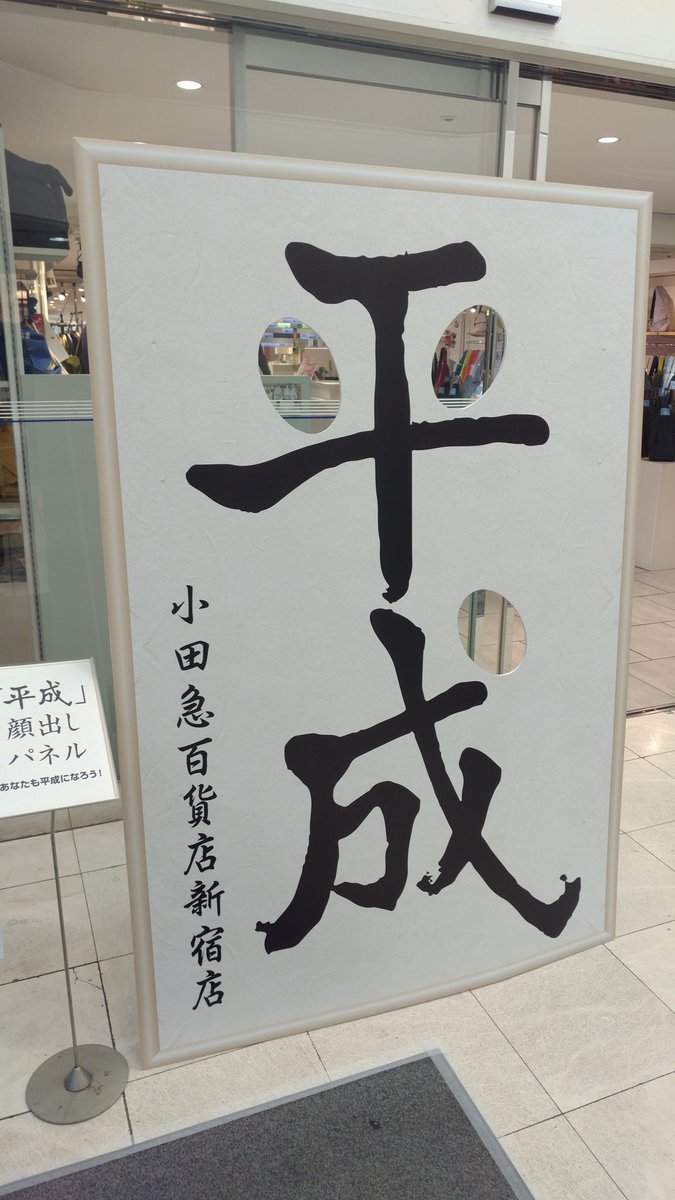 平成
小田急百貨店新宿店
「平成」
顔出し
パネル
あなたも平成になろう!